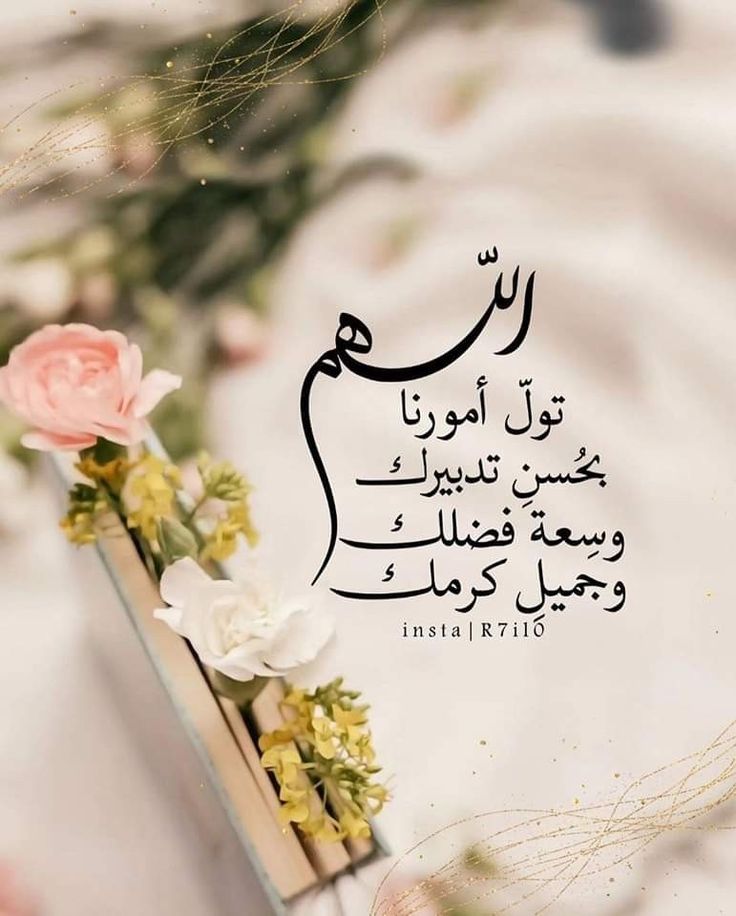 اللّهم
تولّ أمورنا
بحُسنِ تدبيرك
وسِعة فضلك
وجميلِ كرمك
insta|R7i10